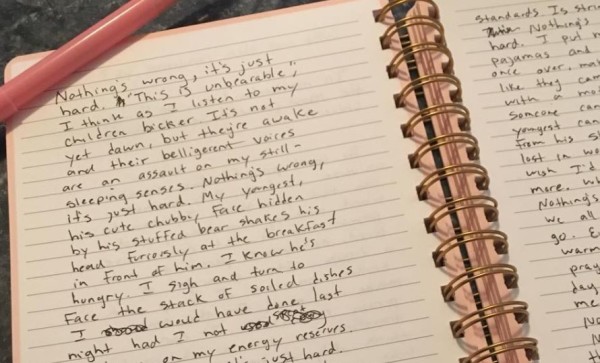 Nothing's wrong, it's just
hard. "This is unbearable,"
I think as I listen to my
children bicker. It's not
yet dawn, but they're awake
and their belligerent voices
are an assault on my still-
sleeping senses. Nothing's wrong,
it's just hard. My youngest,
his cute chubby face hidden
by his stuffed bear shakes his
head furiously at the breakfast
in front of him. I know he's
hungry. I sigh and turn to
face the stack of soiled dishes
I would have done last
night had I not
on my energy reserves.
just hard.
standards. Is
Nothing's
hard. I put
pajamas and
once over,
like they
with a
Someone
youngest
from his
lost in
wish I'd
more.
Nothing's
we all
go.
warm
day.
me
No